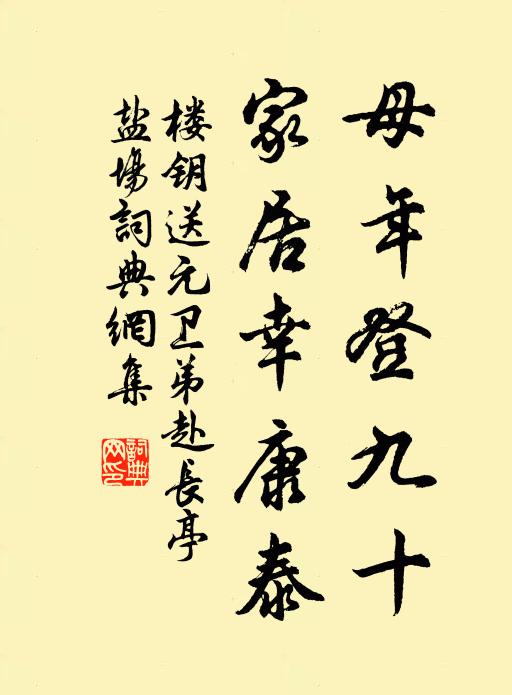 母年登九十
家居幸康泰
楼钥送元卫弟赴长亭
盐场詞典網集
詞典網印